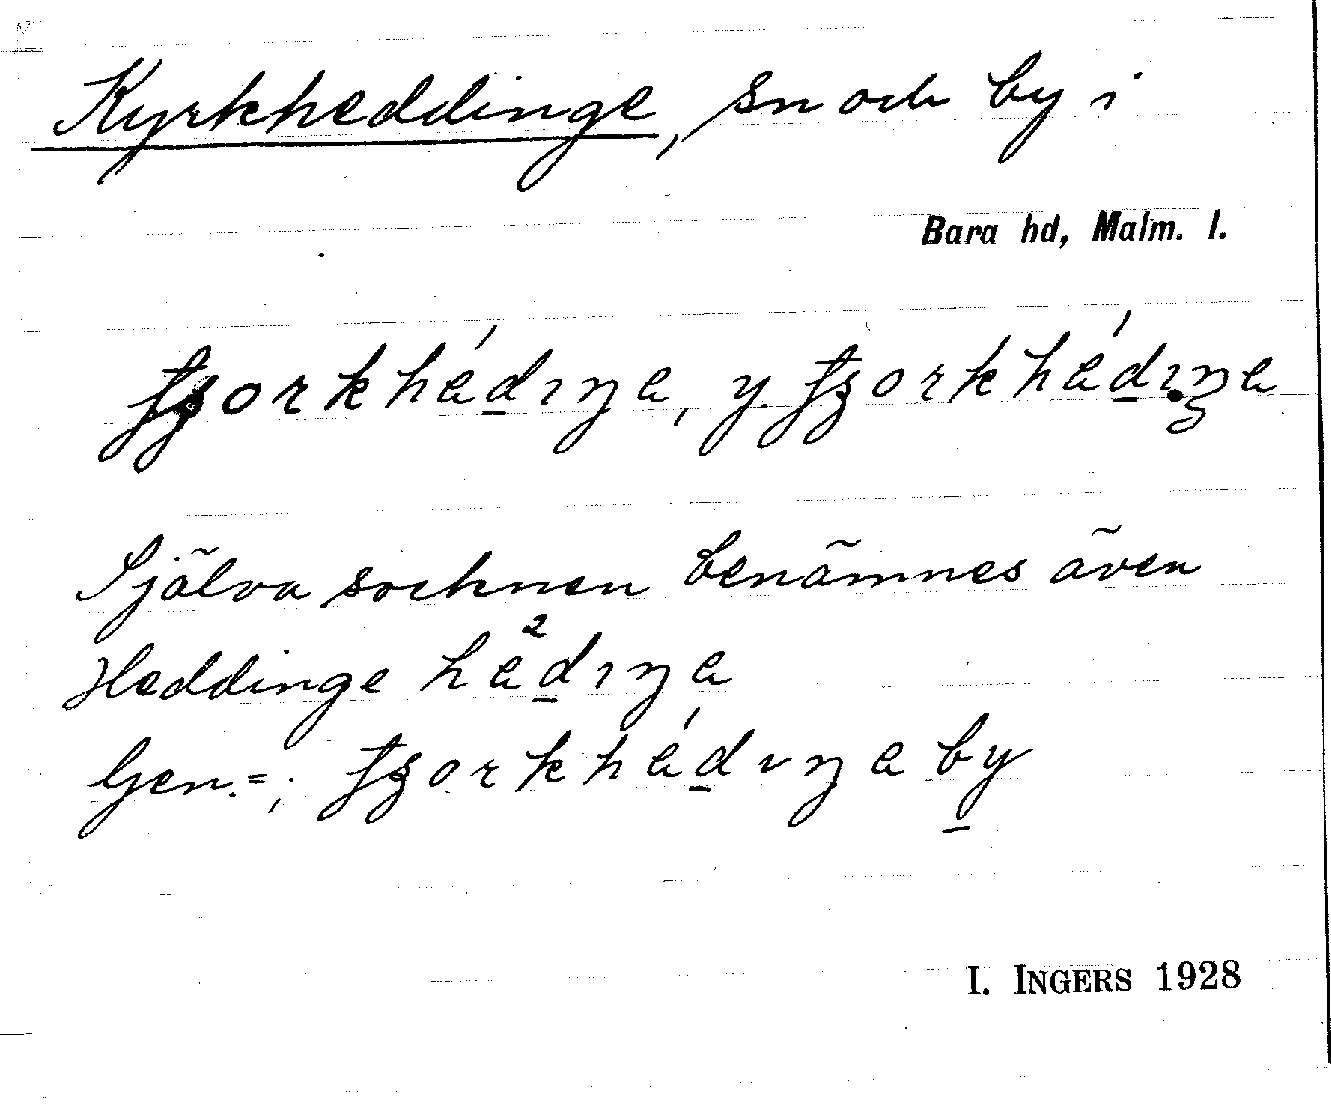 Kyrkheddinge, sn och by i
Bara hd, Malm. l.
tʂorkhédıŋa, y. tʂorkhédıŋa
Själva socknen benämnes även
Heddinge hèd²ıŋa
Gen. =; tʂorkhédıŋa by
I. INGERS 1928